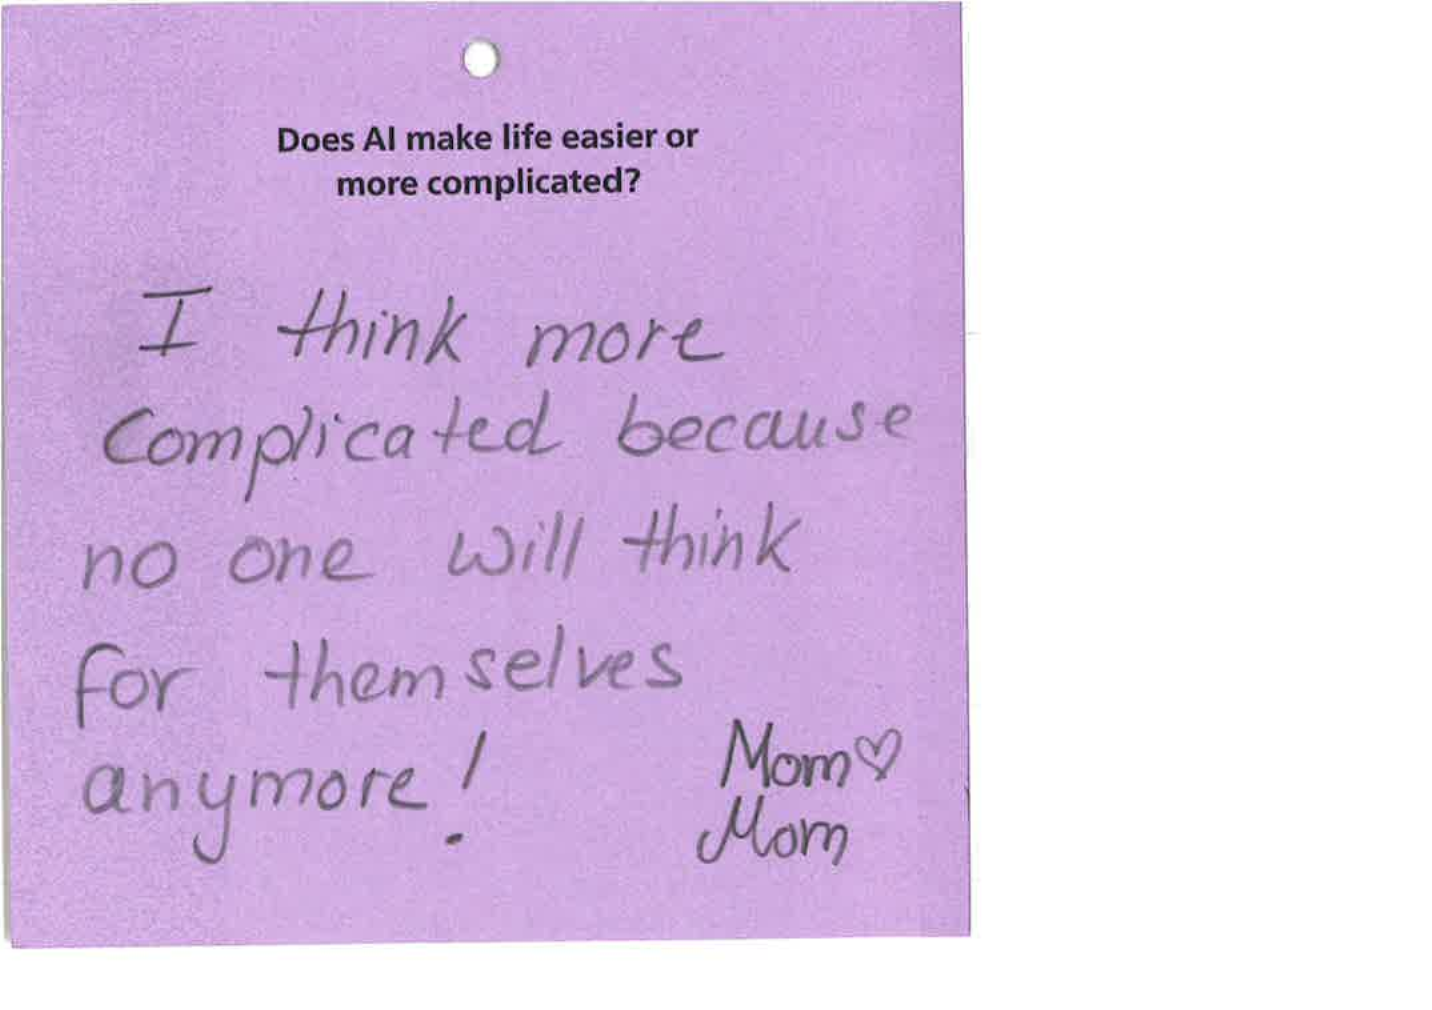 Does AI make life easier or
more complicated?
I think more
complicated because
no one will think
for themselves
anymore!
Mom♡
Mom